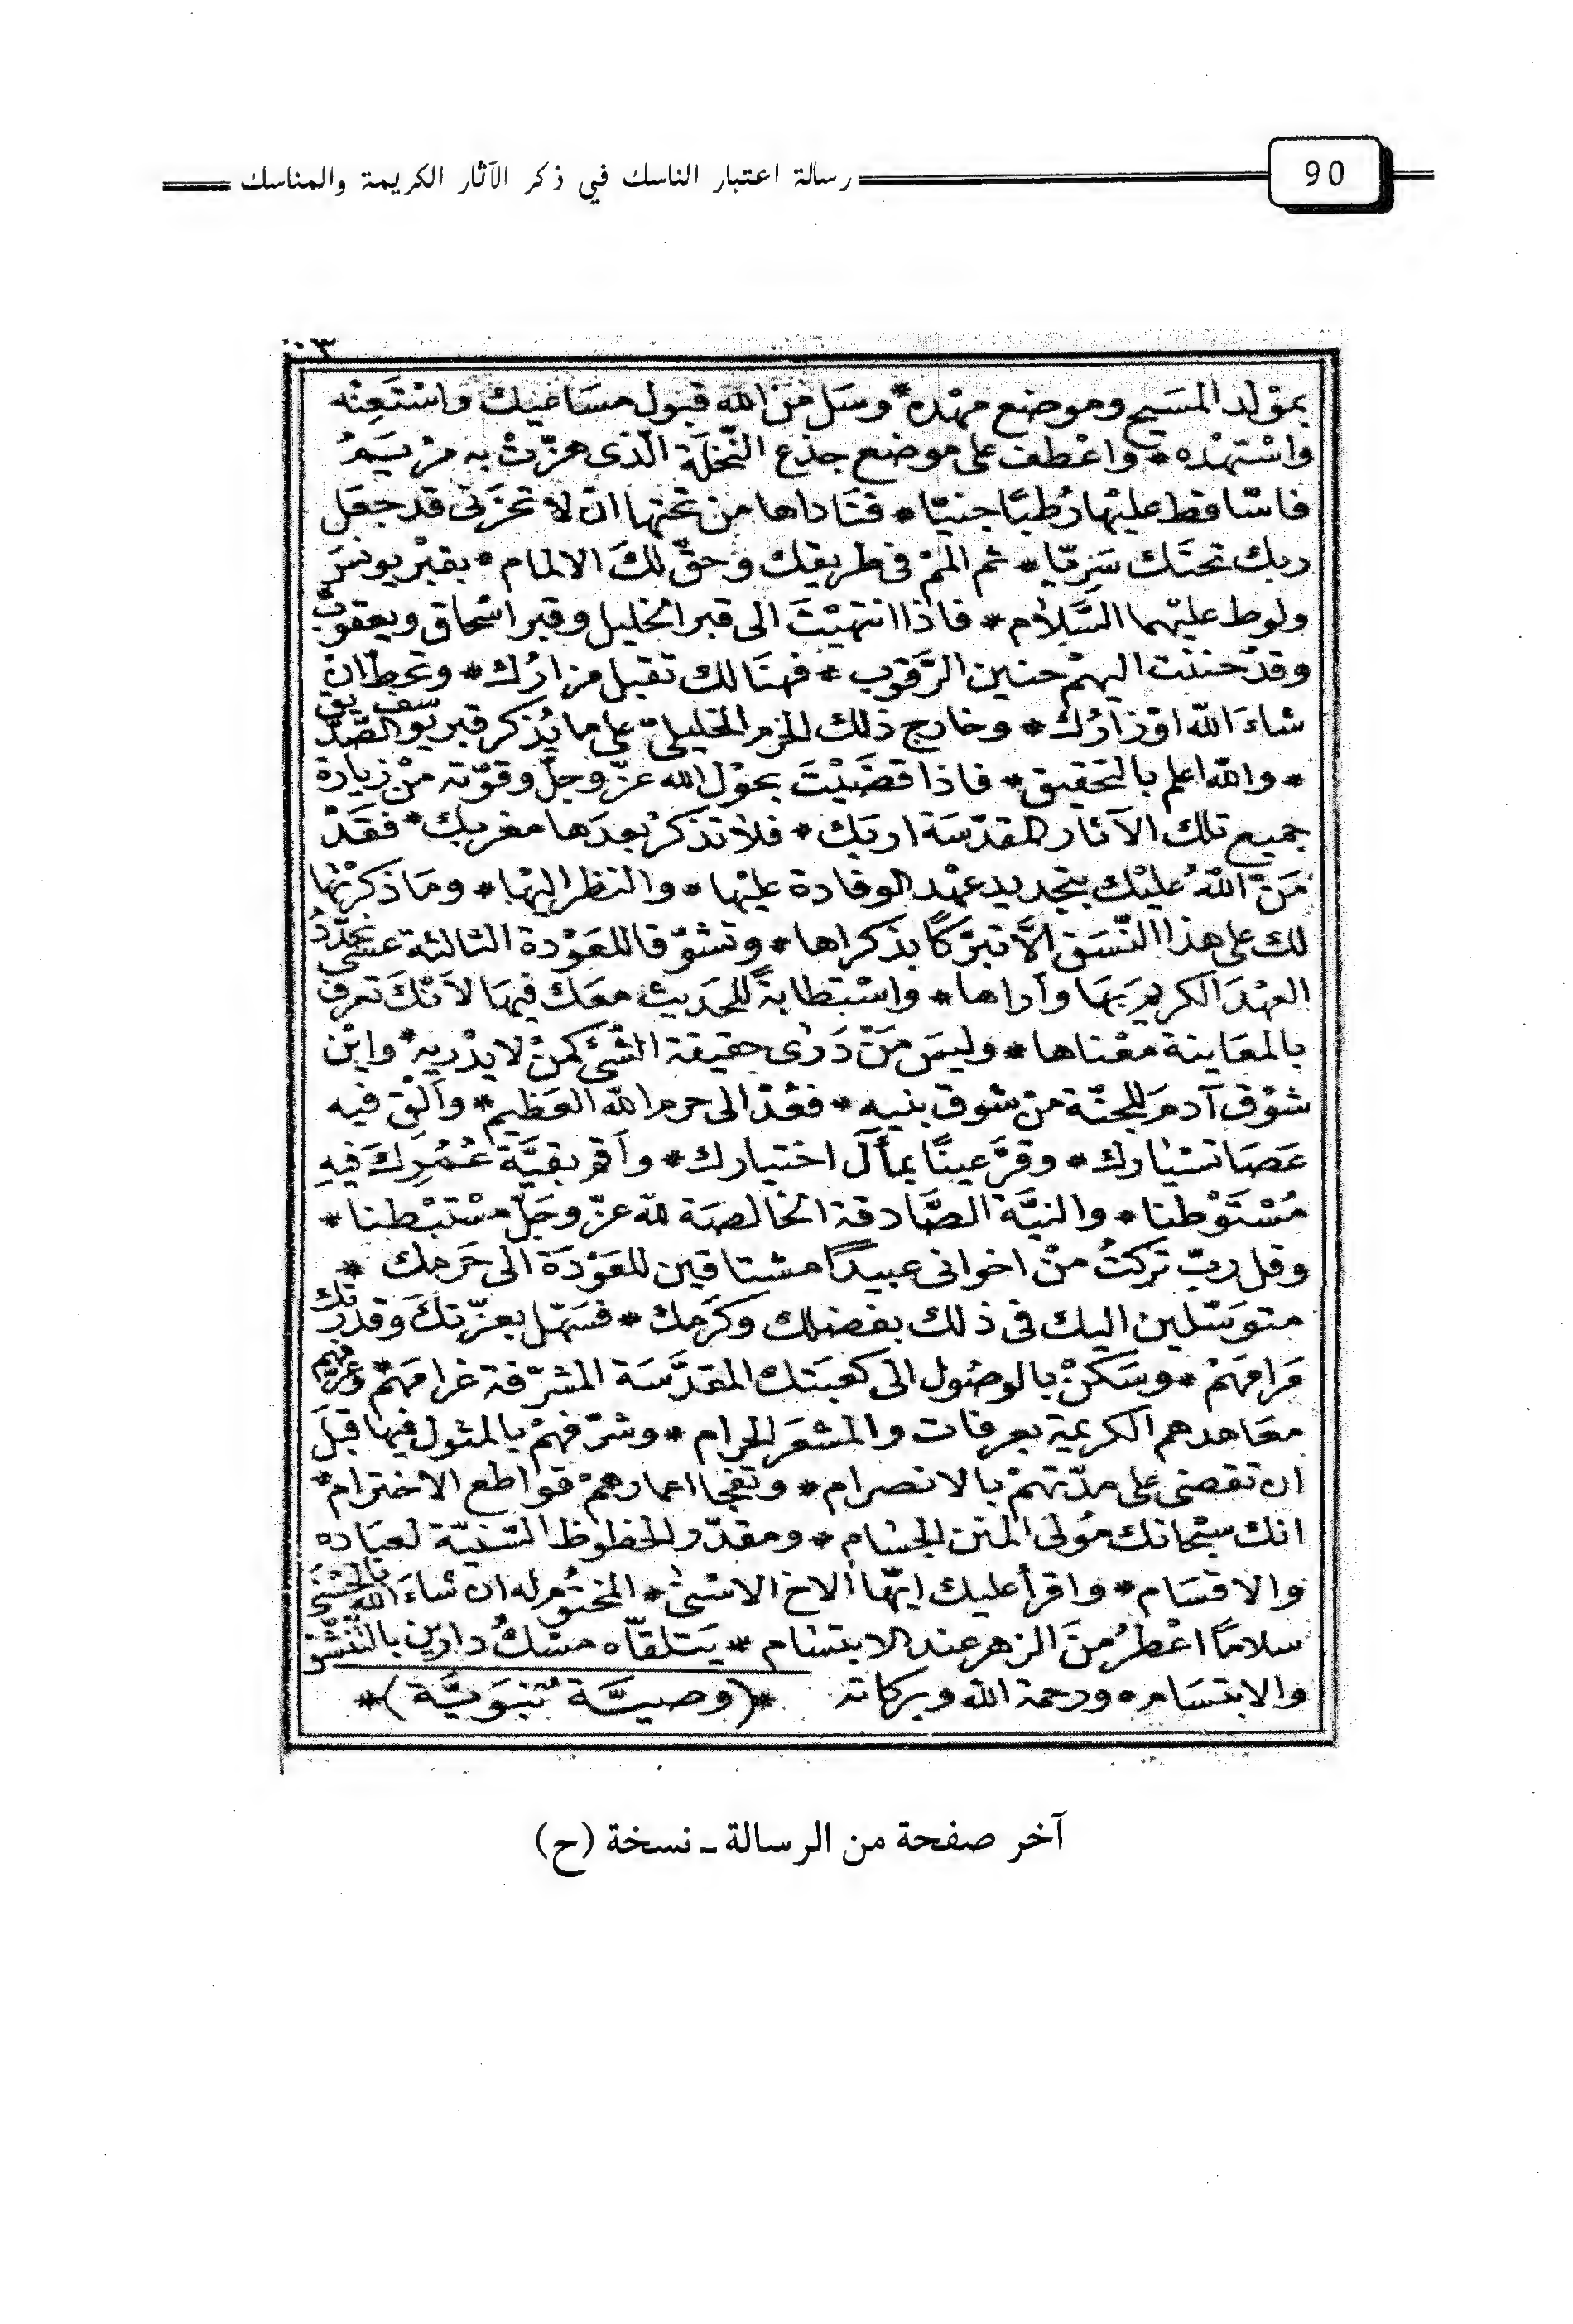 90
رسالة اعتبار الناسك في ذكر الآثار الكريمة والمناسك
بمَوْلد المسَيح وموضع مهْده * وسَل منَ الله قبول مسَاعيك واسْتَعِنْه
واسْتهْده * واعْطف على موضع جذع النّخلَة الّذى هزّتْ به مرْيَمُ
فاسّاقط عليْها رُطبًا جنيّا * فنَاداها من تحتها ان لا تحزَنى قد جعَل
ربك تحتَك سَرِيّا * ثم المْم فى طريقك وحقّ لكَ الالمام * بقبْر يونسَ
ولوط عليْهما السَّلام * فاذا انتهيْتَ الى قبر الخليل وقبر اسْحاق ويعقوبَ
وقدْ حننْت اليهمْ حنين الرَّقوب * فهنَالك تقبل مزارُك * وتحطّ ان
شاءَ الله اوْزارُك * وخارج ذلك الحرم الخليلىّ على ما يُذكر قبر يوسف الصّدّيق
* والله اعلم بالتحقيق * فاذا قضَيْتَ بحوْل الله عزّ وجلّ وقوّته منْ زيارة
جميع تلك الآثار المقدّسَة اربَك * فلا تذكرْ بعدَها مغربك * فقَدْ
مَنّ اللهُ عليْك بتجديد عهْد الوفادة عليْها * والنظر اليْها * ومَا ذكرْتها
لك على هذا النّسَق الَّا تبرّكًا بذكراها * وتشوّقا للعَوْدة الثالثة عسَى نجدّدُ
العهْدَ الكريمَ بهَا وأراها * واسْتطابةً للحَديث معَك فيهَا لأنّكَ تعرف
بالمعَاينة معْناها * وليسَ مَنْ دَرٰى حقيقة الشّئ كمنْ لا يدْريه * واين
شوْق آدمَ للجنّة من شوق بنيه * فعُدْ الى حرم الله العَظيم * وألْق فيه
عَصَا تسْيارك * وقرَّ عينًا بمآل اختيارك * وأقم بقيَّة عُمُرِكَ فيهِ
مُسْتَوْطنا * والنيَّة الصَّادقة الخالصَة لله عزّ وجَلّ مسْتبْطنا *
وقل ربّ تركتُ منْ اخوانى عبيدًا مشتاقين للعَوْدَة الى حَرَمك *
متوسّلين اليك فى ذلك بفضلك وكرَمك * فسَهّل بعزّتكَ وقدْرتك
مَرامَهُمْ * وسَكنْ بالوصُول الى كعبَتك المقدَّسَة المشرّفة غرامَهمْ * وعرّفهم
معَاهدهم الكريمة بعرفات والمشعَر الحرام * وشرّفهمْ بالمثول فيها قبلَ
ان تقضى على مدّتهمْ بالانصرام * وتفجا اعمارهمْ قواطع الاخترام *
انك سبْحانك مُولى المنن الجسَام * ومقدّر الحظوظ السّنيّة لعبَاده
والاقسَام * واقرأ عليك ايّها الاخ الاسْنٰى * المختُوم له ان شاءَ الله بالحُسْنى
سلامًا اعْطرُ منَ الزهر عند الابتسام * يَتلقاه مسْكُ دارين بالتّنشّق
والابتسَام * ورحمة الله وبركاته *(وصيَّة نبَويَّة)*
آخر صفحة من الرسالة ـ نسخة (ح)